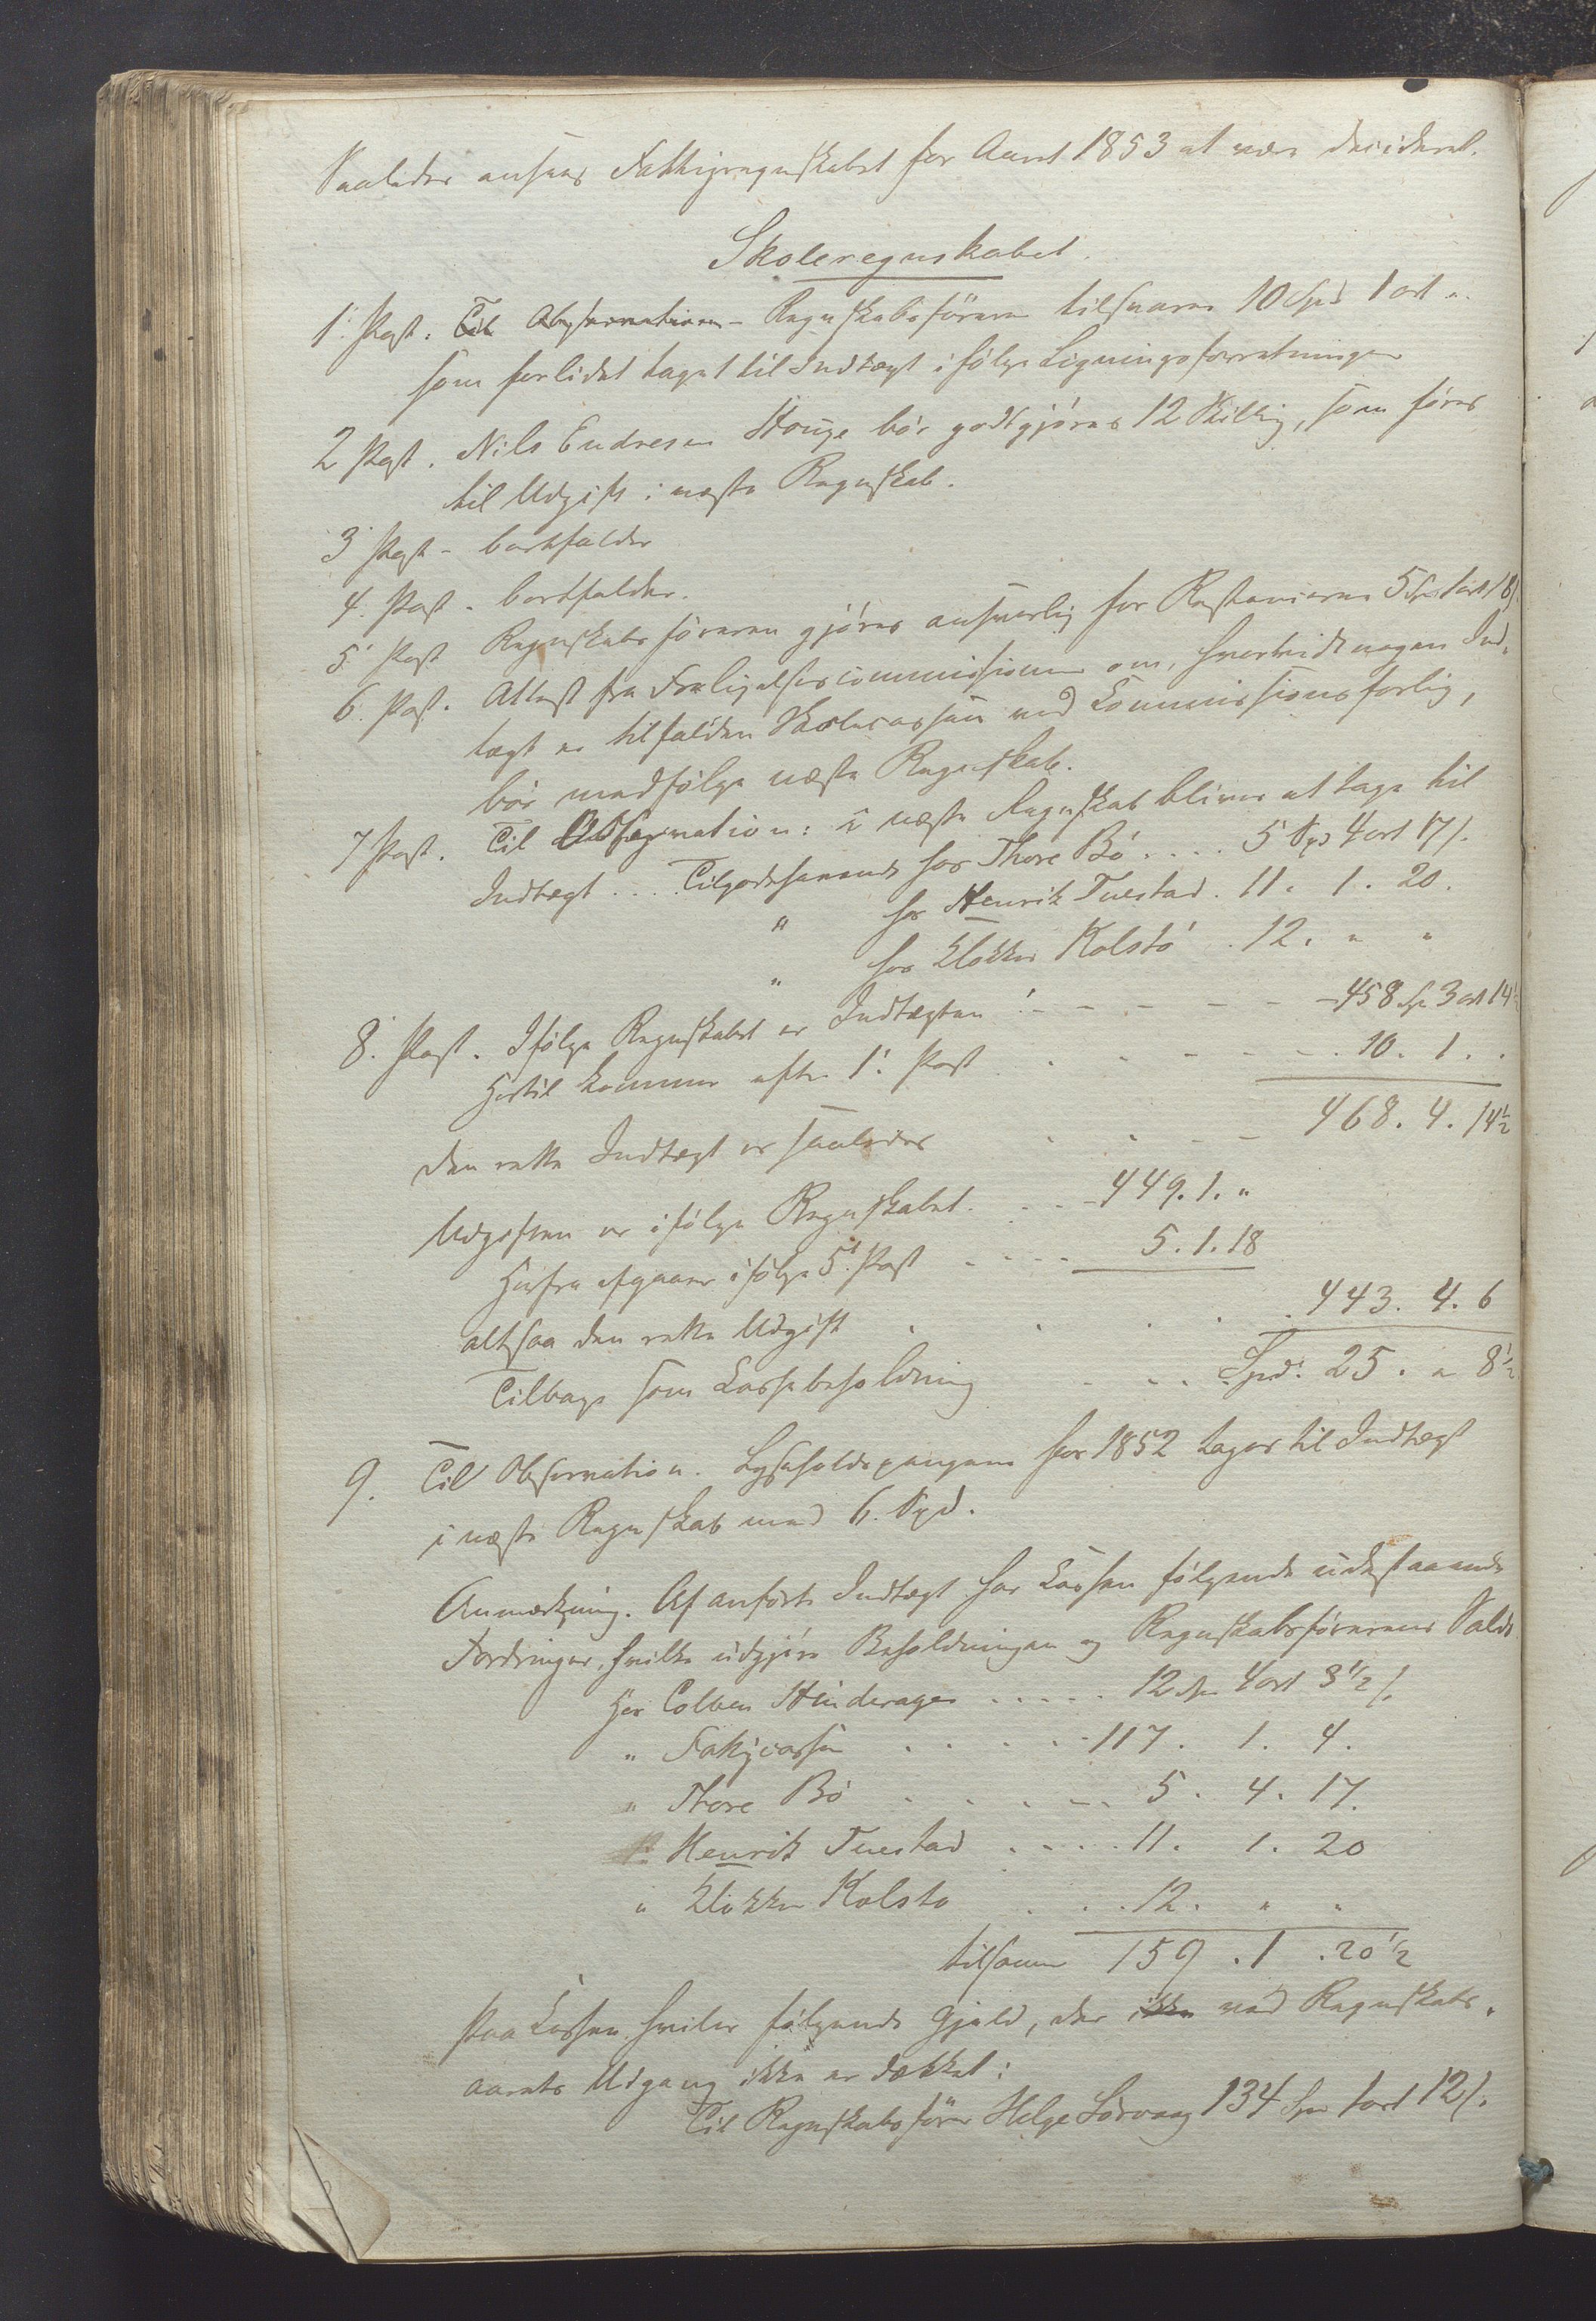 Saaledes ansees Fattigregnskabet for Aaret 1853 at være decideret.
Skoleregnskabet.
1. Post. Til Observation - Regnskabsföreren tilsvarer 10 Spd 1 ort "
som forlidet taget til Indtægt ifölge Ligningsforretningen
2 Post. Nils Endresen Houge bör godtgjöres 12 Skilling, som föres
til Udgift i næste Regnskab.
3 Post - bortfalder
4. Post - bortfalder.
5. Post Regnskabsföreren gjöres ansvarlig for Restancerne 5 Sp 1 ort 18 s.
6. Post. Attest fra Forligelsescommissionen om, hvorvidt nogen Ind-
tægt er tilfalden Skolecassen ved Commissionsforlig,
bör medfölge næste Regnskab.
7 Post. Til Observation: i næste Regnskab bliver at tage til
Indtægt ... Tilgodehavende hos Thore Bö .... 5 Spd 4 ort 17 s.
" hos Henrik Tuestad . 11. 1. 20.
" hos Klokker Kolstö . 12. " "
8. Post. Ifölge Regnskabet er Indtægten - - - - - 458 Sp 3 ort 14½
Hertil kommer efter 1. Post . . - - - . 10. 1. .
den rette Indtægt er saaledes . . - - 468. 4. 14½
Udgiften er ifölge Regnskabet. . . - 449. 1. "
Herfra afgaaer ifölge 5. Post - - - - 5. 1. 18
altsaa den rette Udgift . . . . . 443. 4. 6
Tilbage som Cassebeholdning - - . Spd. 25. " 8½
9. Til Observation. Lysholdspengene for 1852 tages til Indtægt
i næste Regnskab med 6. Spd.
Anmærkning. Af anförte Indtægt har Cassen fölgende udestaaende
Fordringer, hvilke udgjöre Beholdningen og Regnskabsförerens Saldo
Hos Colben Hinderager ..... 12 Sp 4 ort 3½ s.
" Fattigcassen . . . . . 117. 1. 4.
" Thore Bö . . . . - . 5. 4. 17.
" Henrik Tuestad . - . . 11. 1. 20
" Klokker Kolstö . . . 12. " "
tilsammen 159. 1. 20½
Paa Cassen hviler fölgende Gjæld, der ikke ved Regnskabs-
aarets Udgang ikke er dækket:
Til Regnskabsförer Helge Sörvaag 134 Sp 1 ort 12 s.